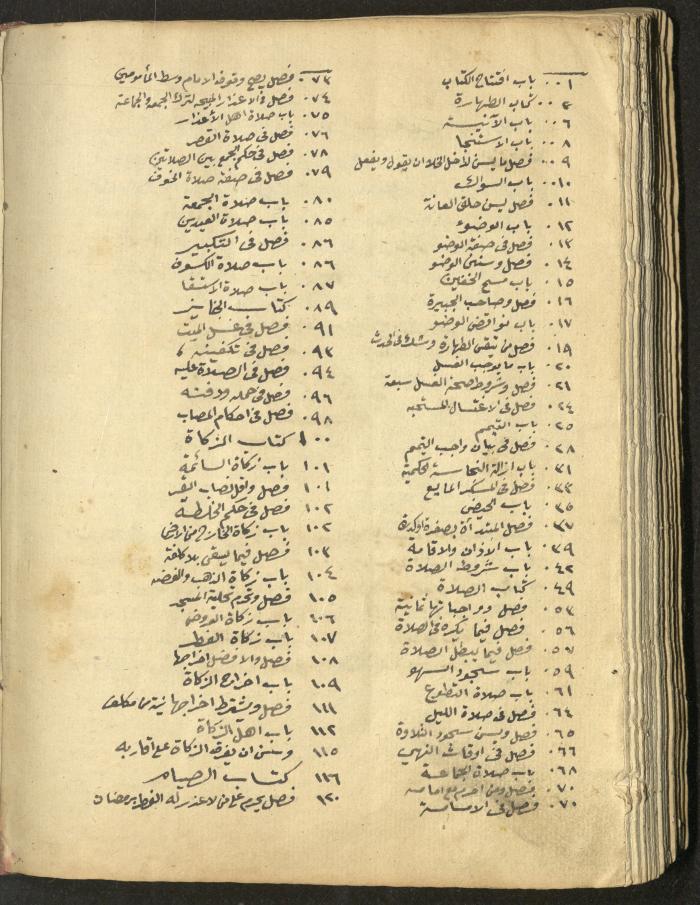 ٠٠١ باب افتتاح الكتاب
٠٠٢ كتاب الطهارة
٠٠٦ باب الآنية
٠٠٨ باب الاستنجا
٠٠٩ فصل ما يسن لداخل الخلا ان يقول ويفعل
٠١٠ باب السواك
٠١١ فصل يسن حلق العانة
٠١٢ باب الوضوء
٠١٣ فصل فى صفة الوضو
٠١٤ فصل وسنن الوضو
٠١٥ باب مسح الخفين
٠١٦ فصل وصاحب الجبيرة
٠١٧ باب نواقض الوضو
٠١٩ فصل من تيقن الطهارة وشك فى الحدث
٠٢٠ باب ما يوجب الغسل
٠٢١ فصل وشروط صحة الغسل سبعة
٠٢٤ فصل فى الاغتسال المستحبه
٠٢٥ باب التيمم
٠٢٨ فصل فى بيان واجب التيمم
٠٣١ باب ازالة النجاسة الحكمية
٠٣٣ فصل فى المسكر المايع
٠٣٥ باب الحيض
٠٣٧ فصل المبتدأة بصفرة او كدرة
٠٣٩ باب الأذان والاقامة
٠٤٢ باب شروط الصلاة
٠٤٩ كتاب الصلاة
٠٥٣ فصل وواجباتها ثمانية
٠٥٦ فصل فيما يكره فى الصلاة
٠٥٧ فصل فيما يبطل الصلاة
٠٥٩ باب سجود السهو
٠٦١ باب صلاة التطوع
٠٦٤ فصل فى صلاة الليل
٠٦٥ فصل ويسن سجود التلاوة
٠٦٦ فصل فى اوقات النهى
٠٦٨ باب صلاة الجماعة
٠٧٠ فصل ومن احرم مع امامه
٠٧٠ فصل فى الامامة
٠٧٣ فصل يصح وقوف الامام وسط المأمومين
٠٧٤ فصل فى الاعذار المبيحه لترك الجمعة والجماعة
٠٧٥ باب صلاة اهل الأعذار
٠٧٦ فصل فى صلاة القصر
٠٧٨ فصل فى حكم الجمع بين الصلاتين
٠٧٩ فصل فى صفة صلاة الخوف
٠٨٠ باب صلاة الجمعة
٠٨٥ باب صلاة العيدين
٠٨٦ فصل فى التكبير
٠٨٦ باب صلاة الكسوف
٠٨٧ باب صلاة الاستسقا
٠٨٩ كتاب الجنايز
٠٩١ فصل فى غسل الميت
٠٩٣ فصل فى تكفينه
٠٩٤ فصل فى الصلاة عليه
٠٩٦ فصل فى حمله ودفنه
٠٩٨ فصل فى احكام المصاب
١٠٠ كتاب الزكاة
١٠١ باب زكاة السائمة
١٠١ فصل واقل نصاب البقر
١٠٢ فصل فى حكم الخلطة
١٠٢ باب زكاة الخارج من الارض
١٠٣ فصل فيما يسقى بلا كلفة
١٠٤ باب زكاة الذهب والفضه
١٠٥ فصل وتحرم تحلية المسجد
١٠٦ باب زكاة العروض
١٠٧ باب زكاة الفطر
١٠٨ فصل والافضل اخراجها
١٠٩ باب اخراج الزكاة
١١١ فصل ويشترط اخراجها نية من مكلف
١١٢ باب اهل الزكاة
١١٥ وسن ان يفرق الزكاة على اقاربه
١١٦ كتاب الصيام
١٢٠ فصل يحرم على من لا عذر له الفطر برمضان